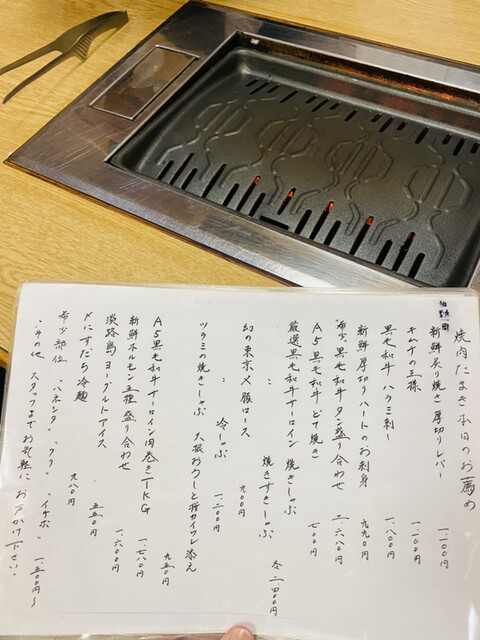 焼肉たまき本日のお薦め
新鮮炙り焼き厚切りレバー 一.一〇〇円
キムチの王様 一.一〇〇円
黒毛和牛ハラミ刺し 一.八〇〇円
新鮮厚切りハートのお刺身 九九〇円
希少黒毛和牛タン盛り合わせ 二.六八〇円
A5黒毛和牛どて焼き 七〇〇円
厳選黒毛和牛サーロイン 焼きしゃぶ
〃 焼きすきしゃぶ 各二.四〇〇円
幻の東京X豚ロース 九〇〇円
〃 冷しゃぶ 一.二〇〇円
ツラミの焼きしゃぶ 大根おろしと柚カイワレ添え 九五〇円
A5黒毛和牛サーロイン肉巻きTKG 一.七八〇円
新鮮ホルモン五種盛り合わせ 一.六〇〇円
淡路島ヨーグルトアイス 五五〇円
〆にすだち冷麺 九八〇円
希少部位 ハネシタ、クリ、イチボ 一.五〇〇円〜
その他 スタッフまでお気軽にお声かけ下さい。